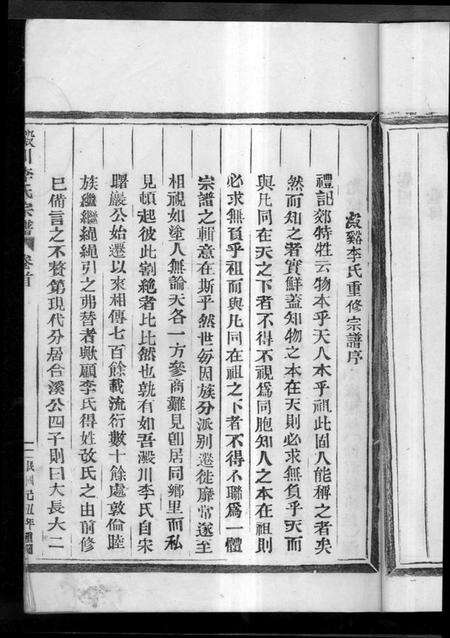 瀫谿李氏重修宗譜序
禮記郊特牲云物本乎天人本乎祖此固人能稱之者矣
然而知之者實鮮蓋知物之本在天則必求無負乎天而
與凡同在天之下者不得不視爲同胞知人之本在祖則
必求無負乎祖而與凡同在祖之下者不得不聯爲一體
宗譜之輯意在斯乎然世每因族分派別遷徙靡常遂至
相視如塗人無論天各一方參商難見卽居同鄉里而私
見頓起彼此割絶者比比然也孰有如吾瀫川李氏自宋
曙巖公始遷以來相傳七百餘載流衍數十餘處敦倫睦
族繼繼繩繩引之弗替者歟顧李氏得姓改氏之由前修
已備言之不贅第現代分居合溪公四子則曰大長大二
瀫川李氏宗譜 卷首
民國己丑年重修